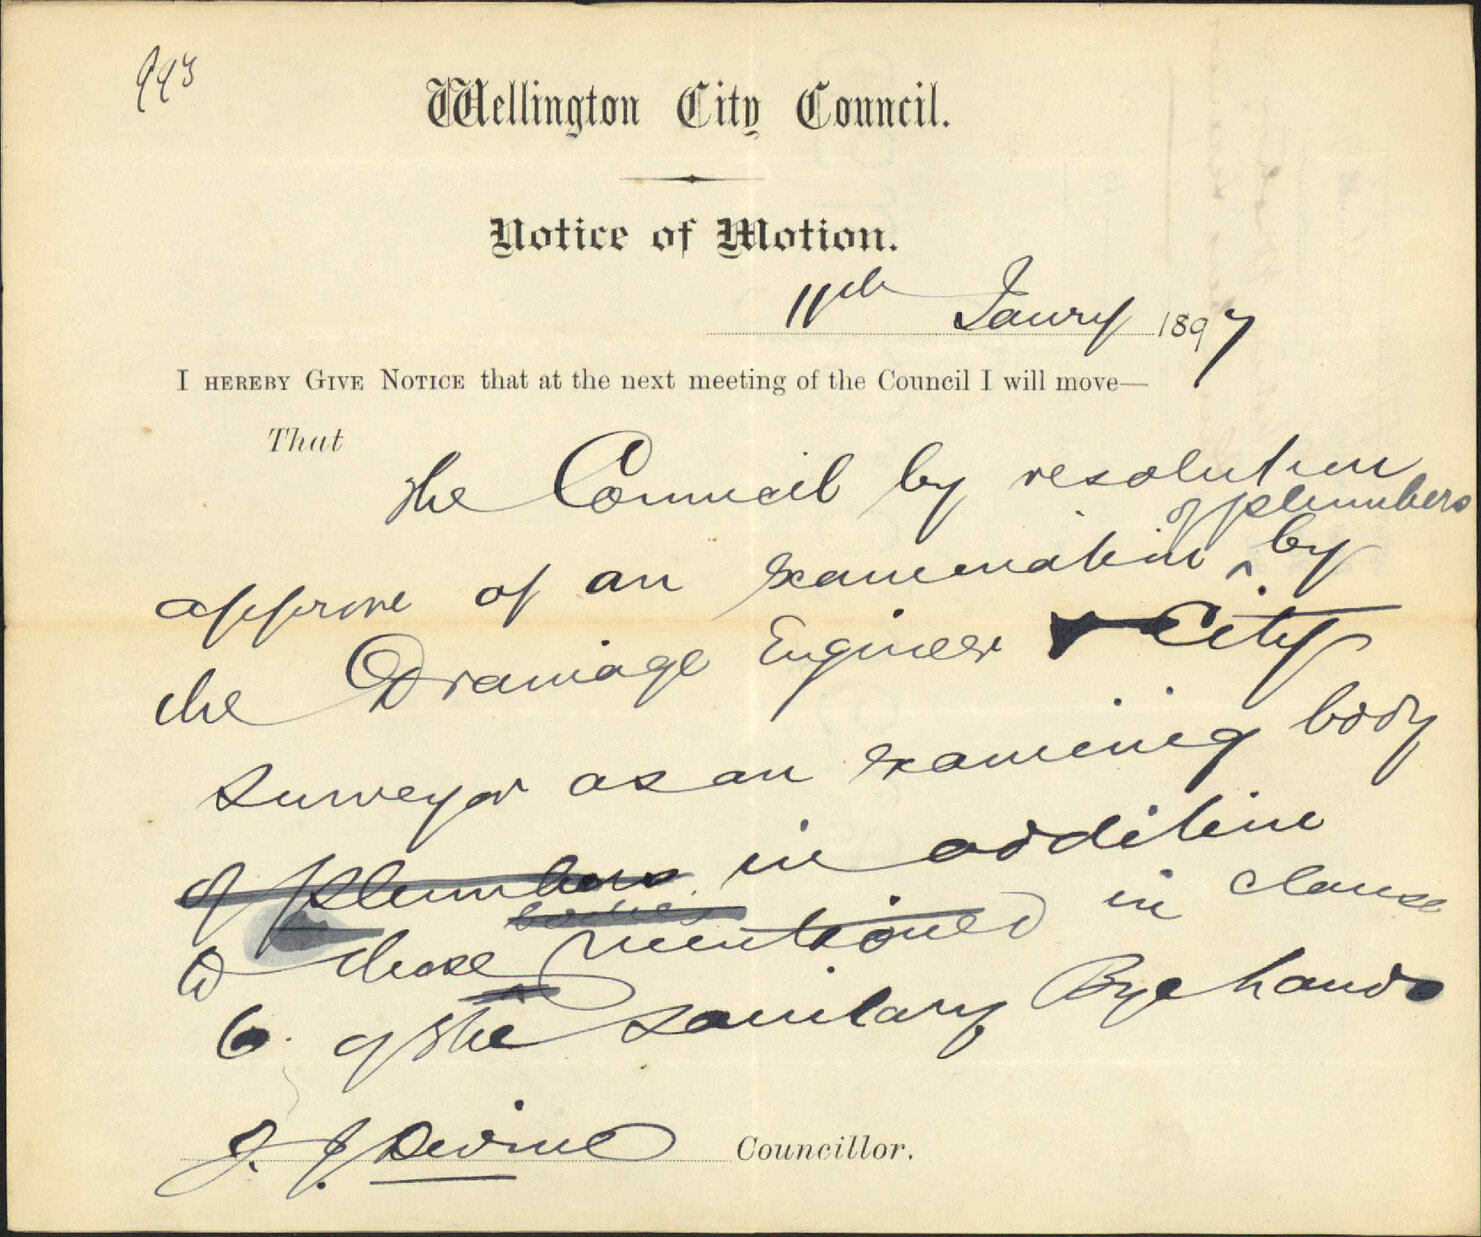 993
Wellington City Council.
Notice of Motion.
11th Janry 1897
I HEREBY GIVE NOTICE that at the next meeting of the Council I will move—
That
the Council by resolution
of plumbers
approve of an examination ^ by
the Drainage Engineer & City
Surveyor as an examining body
of plumbers in addition
bodies
to those mentioned in clause
6. of the Sanitary Bye Laws
J. J. Devine Councillor.